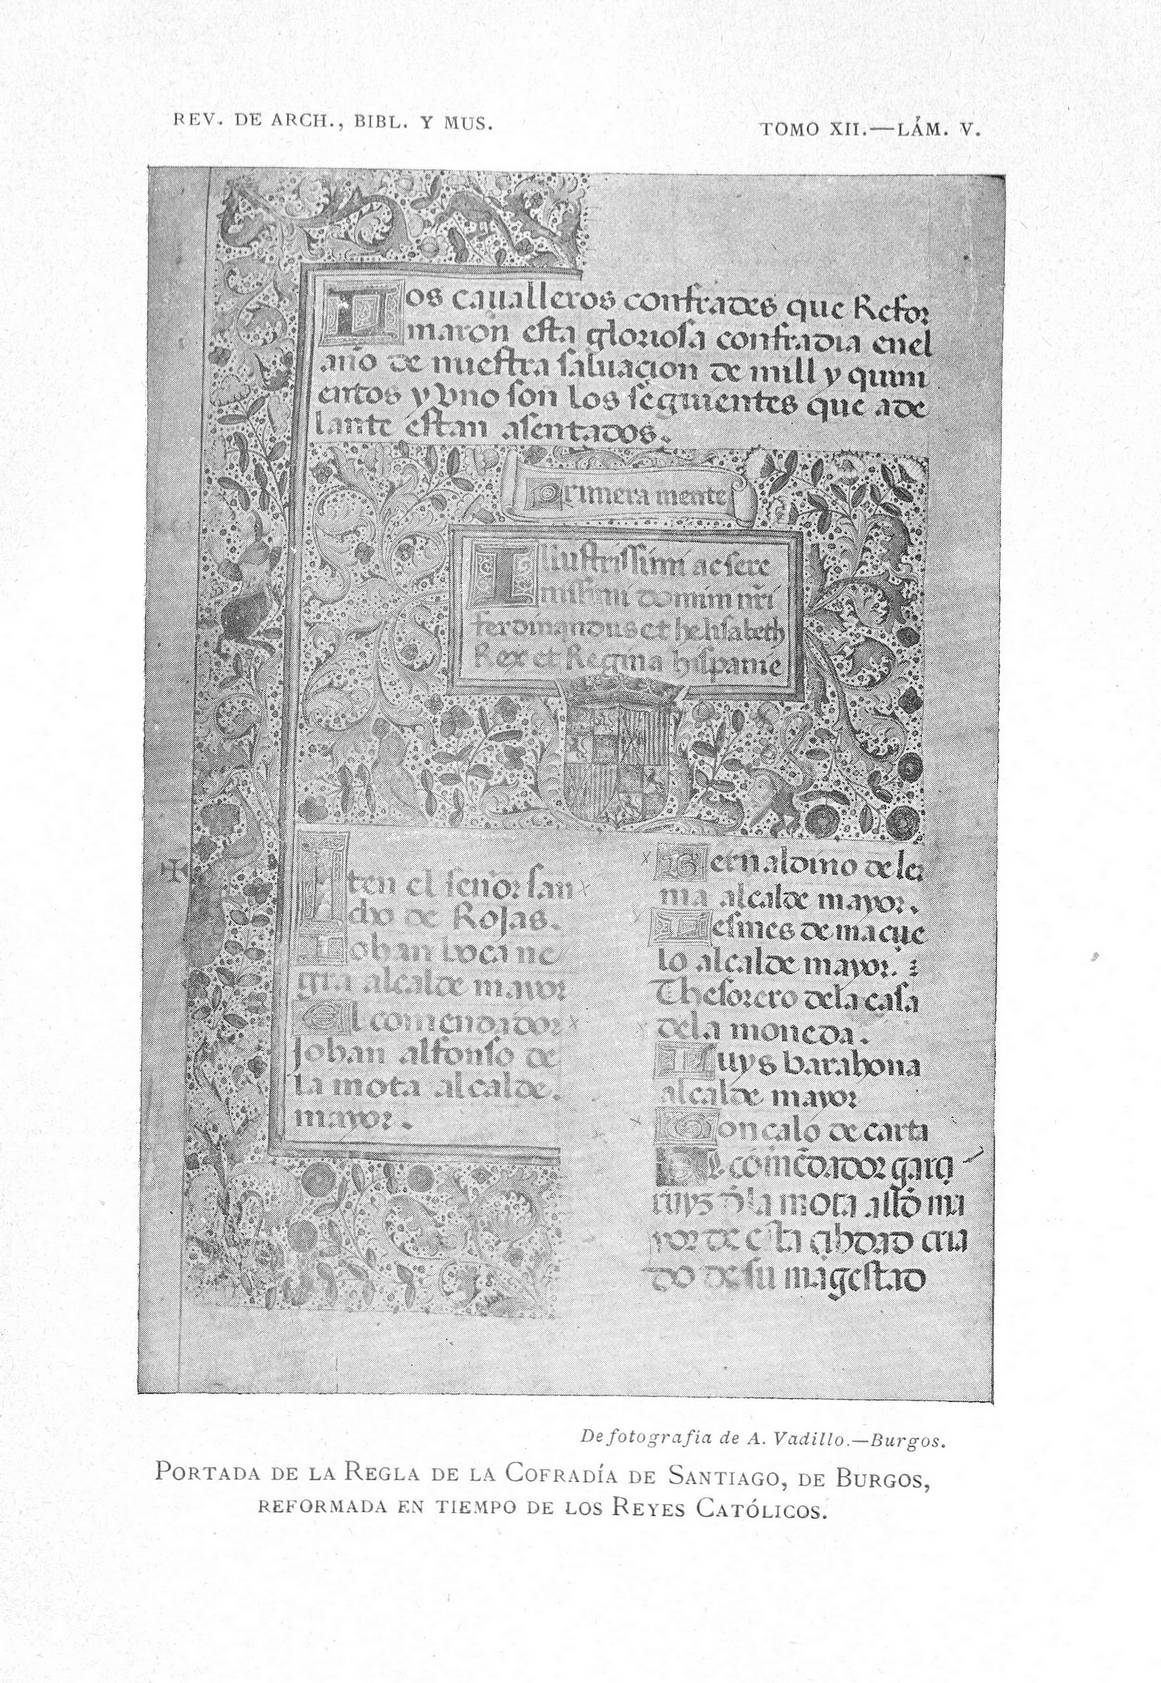 REV. DE ARCH., BIBL. Y MUS.
TOMO XII.—LÁM. V.
Los caualleros confrades que Refor
maron esta gloriosa confradia enel
año de nuestra saluaçion de mill y quini
entos y vno son los seguientes que ade
lante estan asentados.
primera mente
Illustrissimi ac sere
nissimi domini nr̃i
ferdinandus et helisabeth
Rex et Regina hispanie
Iten el señor san
cho de Rojas.
Iohan bocane
gra alcalde mayor
El comendador
Johan alfonso de
la mota alcalde.
mayor.
Bernaldino de ler
ma alcalde mayor.
Lesmes de maçue
lo alcalde mayor. z
Thesorero dela casa
dela moneda.
Luys barahona
alcalde mayor
Gonçalo de carta
El comẽdador garçi
ruys de la mota allõ ma
yor de esta çibdad cria
do de su magestad
De fotografía de A. Vadillo.—Burgos.
PORTADA DE LA REGLA DE LA COFRADÍA DE SANTIAGO, DE BURGOS,
REFORMADA EN TIEMPO DE LOS REYES CATÓLICOS.